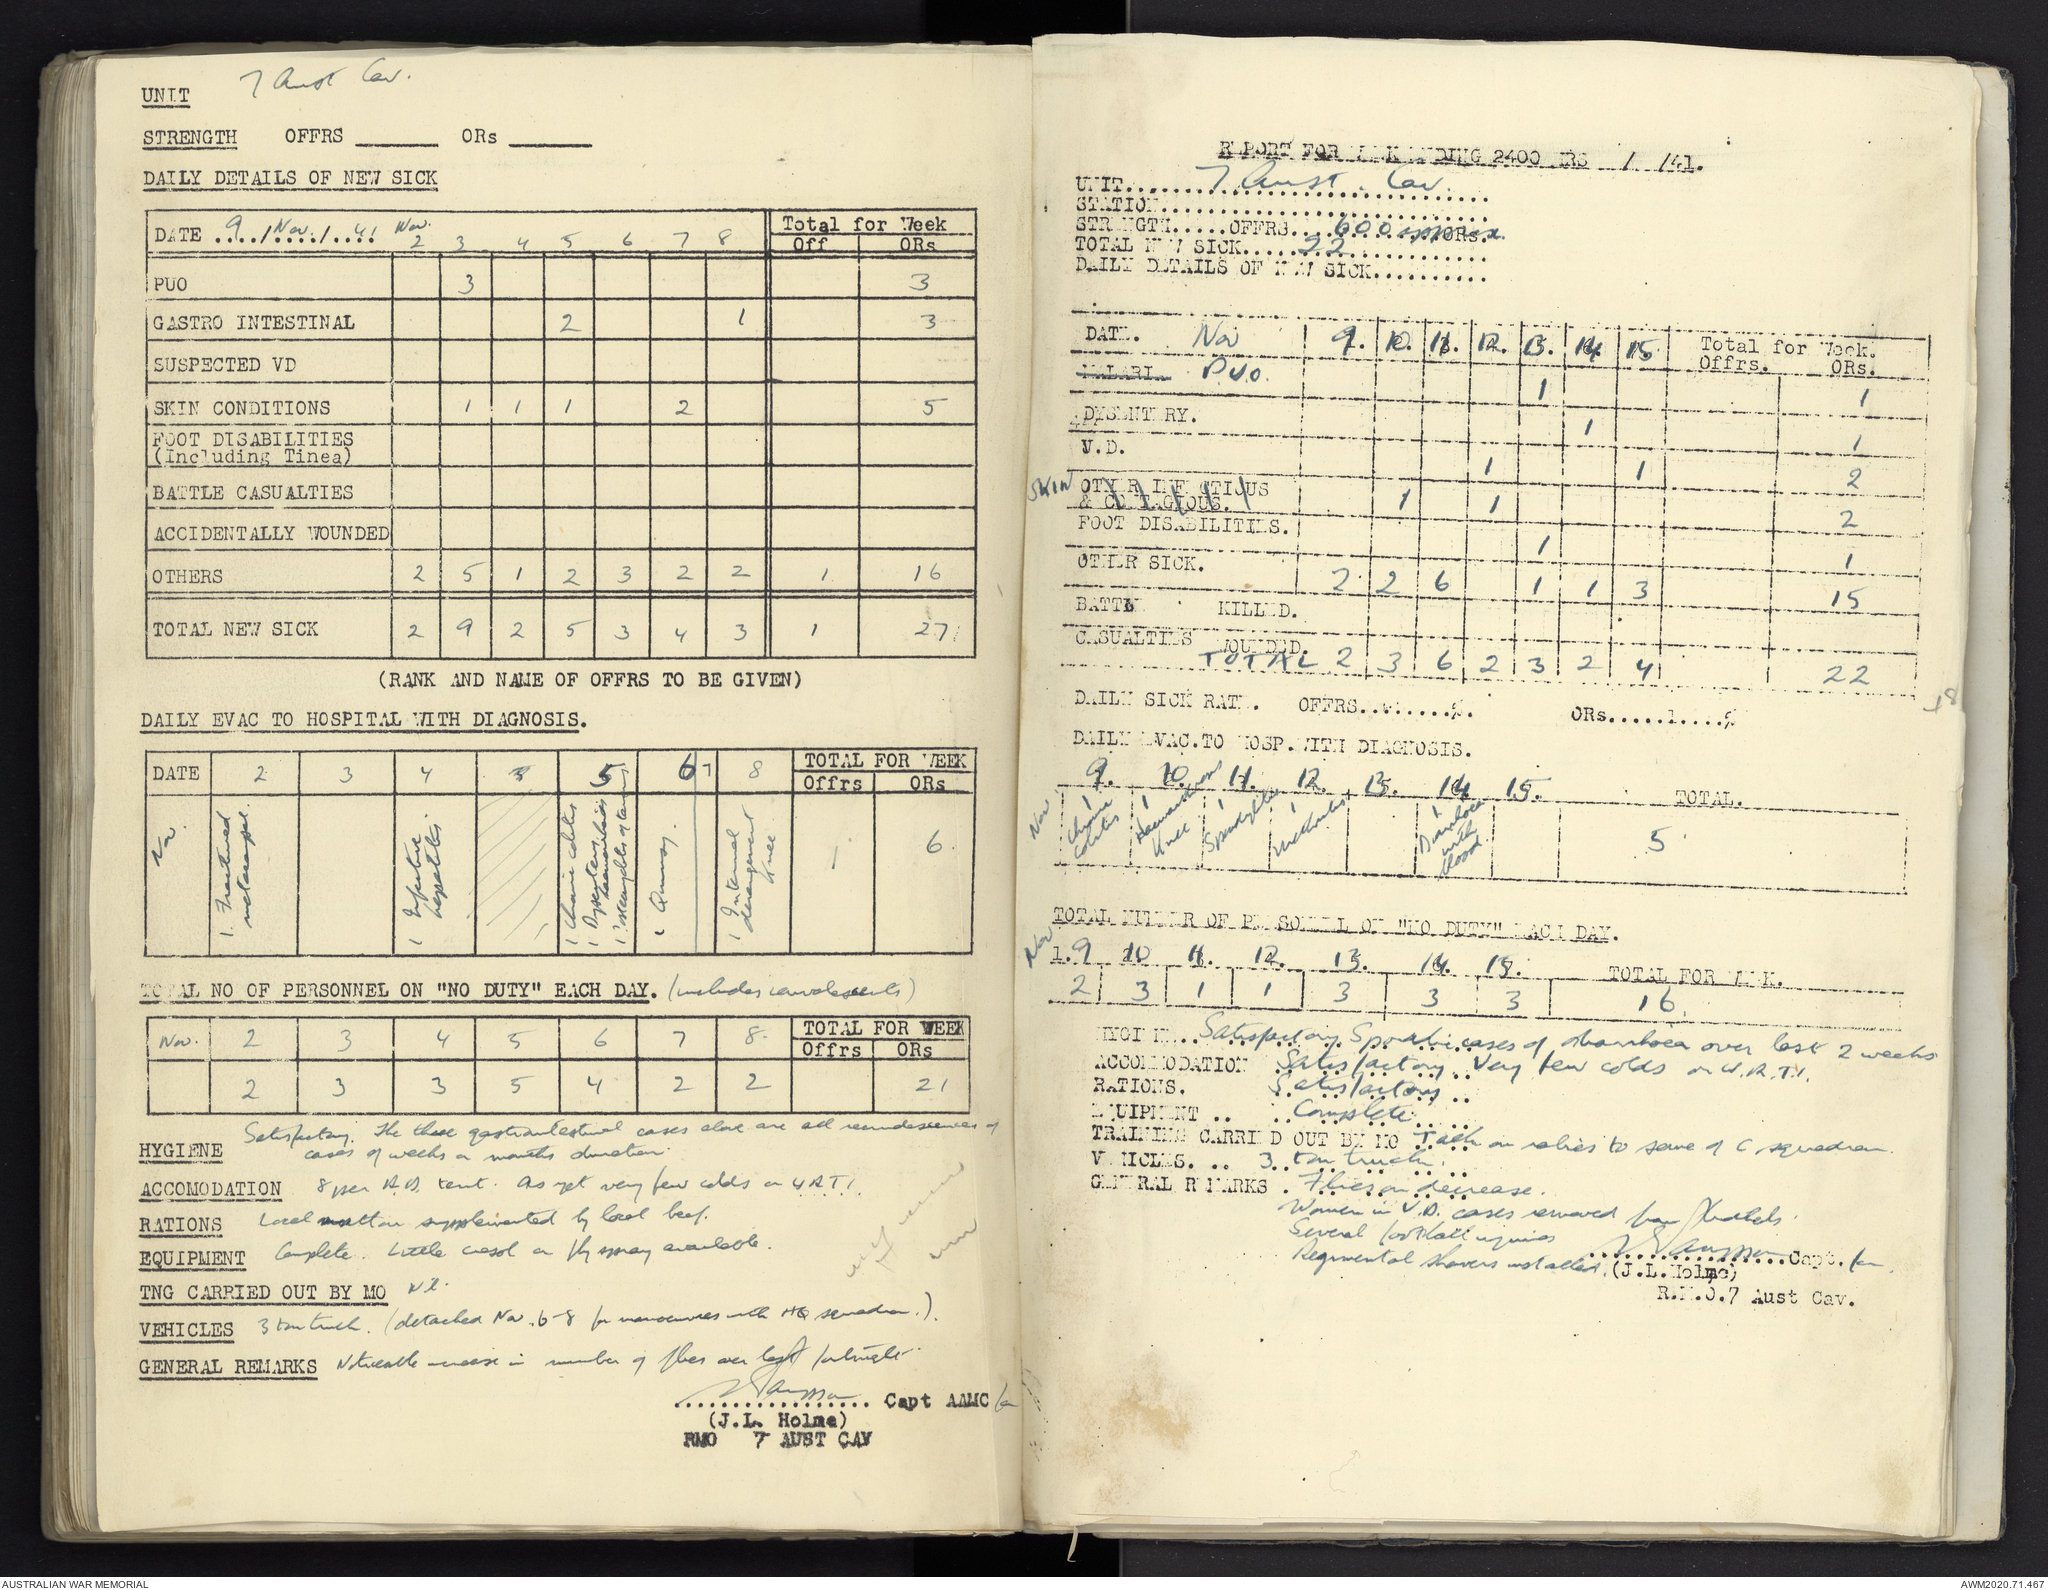 UNIT 7 Aust Cav.
STRENGTH OFFRS ______ ORs ______
DAILY DETAILS OF NEW SICK
DATE 9 / Nov. / 41 Nov. 2 3 4 5 6 7 8 Total for Week
Off ORs
PUO 3 3
GASTRO INTESTINAL 2 1 3
SUSPECTED VD
SKIN CONDITIONS 1 1 1 2 5
FOOT DISABILITIES
(Including Tinea)
BATTLE CASUALTIES
ACCIDENTALLY WOUNDED
OTHERS 2 5 1 2 3 2 2 1 16
TOTAL NEW SICK 2 9 2 5 3 4 3 1 27
(RANK AND NAME OF OFFRS TO BE GIVEN)
DAILY EVAC TO HOSPITAL WITH DIAGNOSIS.
DATE 2 3 4 5 6 7 8 TOTAL FOR WEEK
Offrs ORs
1. Fractured metacarpal.
1 Infective hepatitis
1 Chronic colitis
1 Dysentery
1 Quinsy.
1 Internal derangement knee
- 6
TOTAL NO OF PERSONNEL ON "NO DUTY" EACH DAY. (includes convalescents)
Nov. 2 3 4 5 6 7 8 TOTAL FOR WEEK
Offrs ORs
2 3 3 5 4 2 2 21
HYGIENE Satisfactory. The three gastrointestinal cases above are all recrudescences of
cases of weeks or months duration.
ACCOMODATION 8 per tent. As yet very few colds or URTI.
RATIONS Local mutton supplemented by local beef.
EQUIPMENT Complete. Little cresol or fly spray available.
TNG CARRIED OUT BY MO Nil.
VEHICLES 3 ton truck. (detached Nov. 6-8 for manoeuvres with HQ squadron.)
GENERAL REMARKS Noticeable increase in number of flies over last fortnight.
Capt AAMC for
(J.L. Holme)
RMO 7 AUST CAV
REPORT FOR WEEK ENDING 2400 HRS / /41.
UNIT 7 Aust. Cav.
STATION
STRENGTH OFFRS 600 approx ORs.
TOTAL NEW SICK 22
DAILY DETAILS OF NEW SICK
DATE. Nov 9. 10. 11. 12. 13. 14. 15 Total for Week.
Offrs. ORs.
MALARIA P.U.O. 1 1
DYSENTERY. 1 1
V.D. 1 1 2
SKIN OTHER INFECTIOUS
& CONTAGIOUS. 1 1 2
FOOT DISABILITIES. 1 1
OTHER SICK. 2 2 6 1 1 3 15
BATTLE KILLED.
CASUALTIES WOUNDED.
TOTAL 2 3 6 2 3 2 4 22
DAILY SICK RATE. OFFRS. % ORs 1 %
DAILY EVAC. TO HOSP. WITH DIAGNOSIS.
Nov 9. 10. 11. 12. 13. 14 15. TOTAL.
1 Chronic colitis
1 Haemarthrosis Knee
1 Spondylitis
1 Urethritis
1 Diarrhoea with blood.
5
TOTAL NUMBER OF PERSONNEL ON "NO DUTY" EACH DAY.
Nov 1. 9 10 11. 12. 13. 14. 15. TOTAL FOR WEEK.
2 3 1 1 3 3 3 16
HYGIENE Satisfactory. Sporadic cases of diarrhoea over last 2 weeks
ACCOMMODATION Satisfactory. Very few colds or U.R.T.I.
RATIONS. Satisfactory
EQUIPMENT Complete
TRAINING CARRIED OUT BY MO Talk on rabies to some of C squadron.
VEHICLES. 3 ton truck.
GENERAL REMARKS Flies on decrease.
Women in V.D. cases removed from brothels.
Several football injuries
Regimental showers installed.
Capt. for
(J.L. Holme)
R.M.O. 7 Aust Cav.
AUSTRALIAN WAR MEMORIAL
AWM2020.71.467